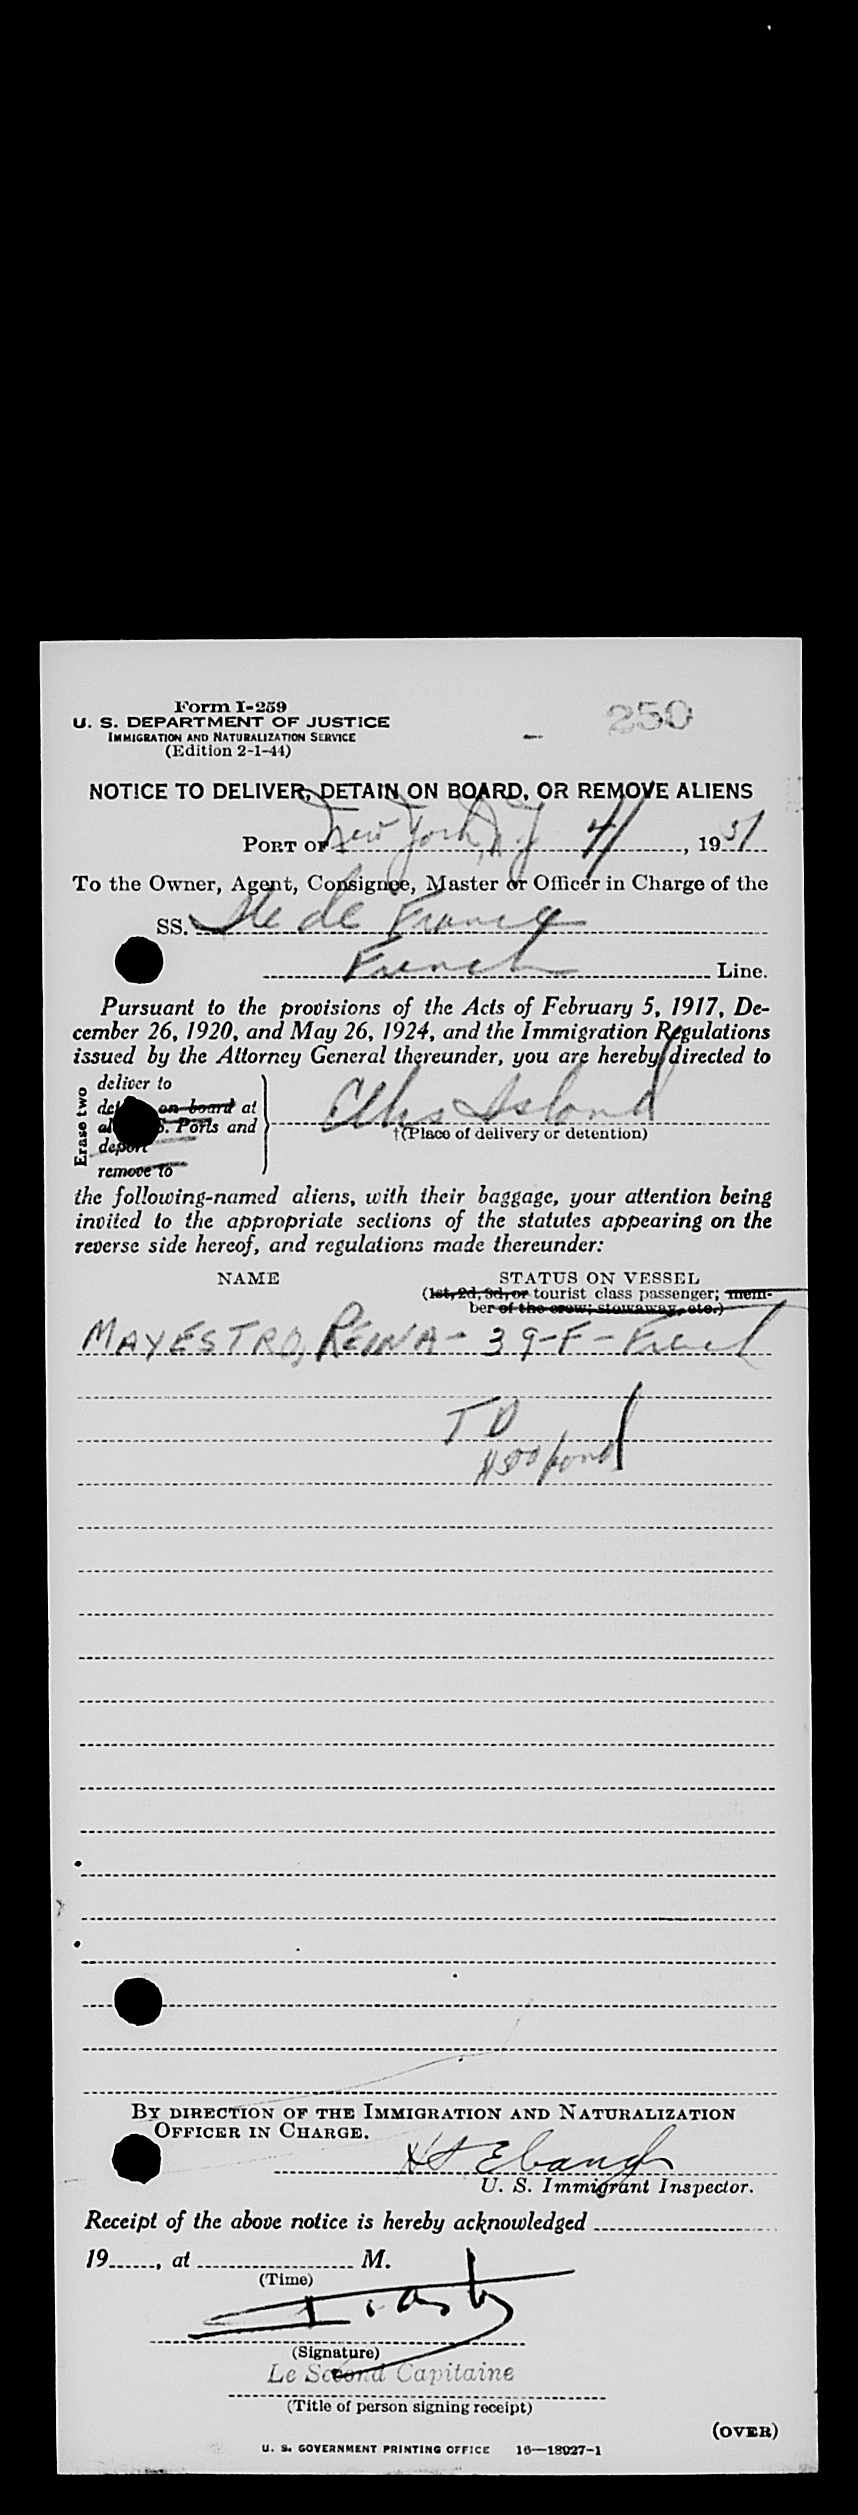 Form I-259
U. S. DEPARTMENT OF JUSTICE
IMMIGRATION AND NATURALIZATION SERVICE
(Edition 2-1-44)
250
NOTICE TO DELIVER, DETAIN ON BOARD, OR REMOVE ALIENS
PORT OF New York, N.Y 4/ , 1951
To the Owner, Agent, Consignee, Master or Officer in Charge of the
SS. Ile de France
French Line.
Pursuant to the provisions of the Acts of February 5, 1917, De-
cember 26, 1920, and May 26, 1924, and the Immigration Regulations
issued by the Attorney General thereunder, you are hereby directed to
Erase two
deliver to
on board at
S. Ports and
deport
remove to
Ellis Island
†(Place of delivery or detention)
the following-named aliens, with their baggage, your attention being
invited to the appropriate sections of the statutes appearing on the
reverse side hereof, and regulations made thereunder:
NAME
STATUS ON VESSEL
(1st, 2d, 3d, or tourist class passenger; mem-
ber of the crew; stowaway, etc.)
MAYESTRO, REINA - 39-F - French
TD
500 bond
BY DIRECTION OF THE IMMIGRATION AND NATURALIZATION
OFFICER IN CHARGE.
Ebaugh
U. S. Immigrant Inspector.
Receipt of the above notice is hereby acknowledged
19......, at M.
(Time)
(Signature)
Le Second Capitaine
(Title of person signing receipt)
(OVER)
U. S. GOVERNMENT PRINTING OFFICE 16—18927-1